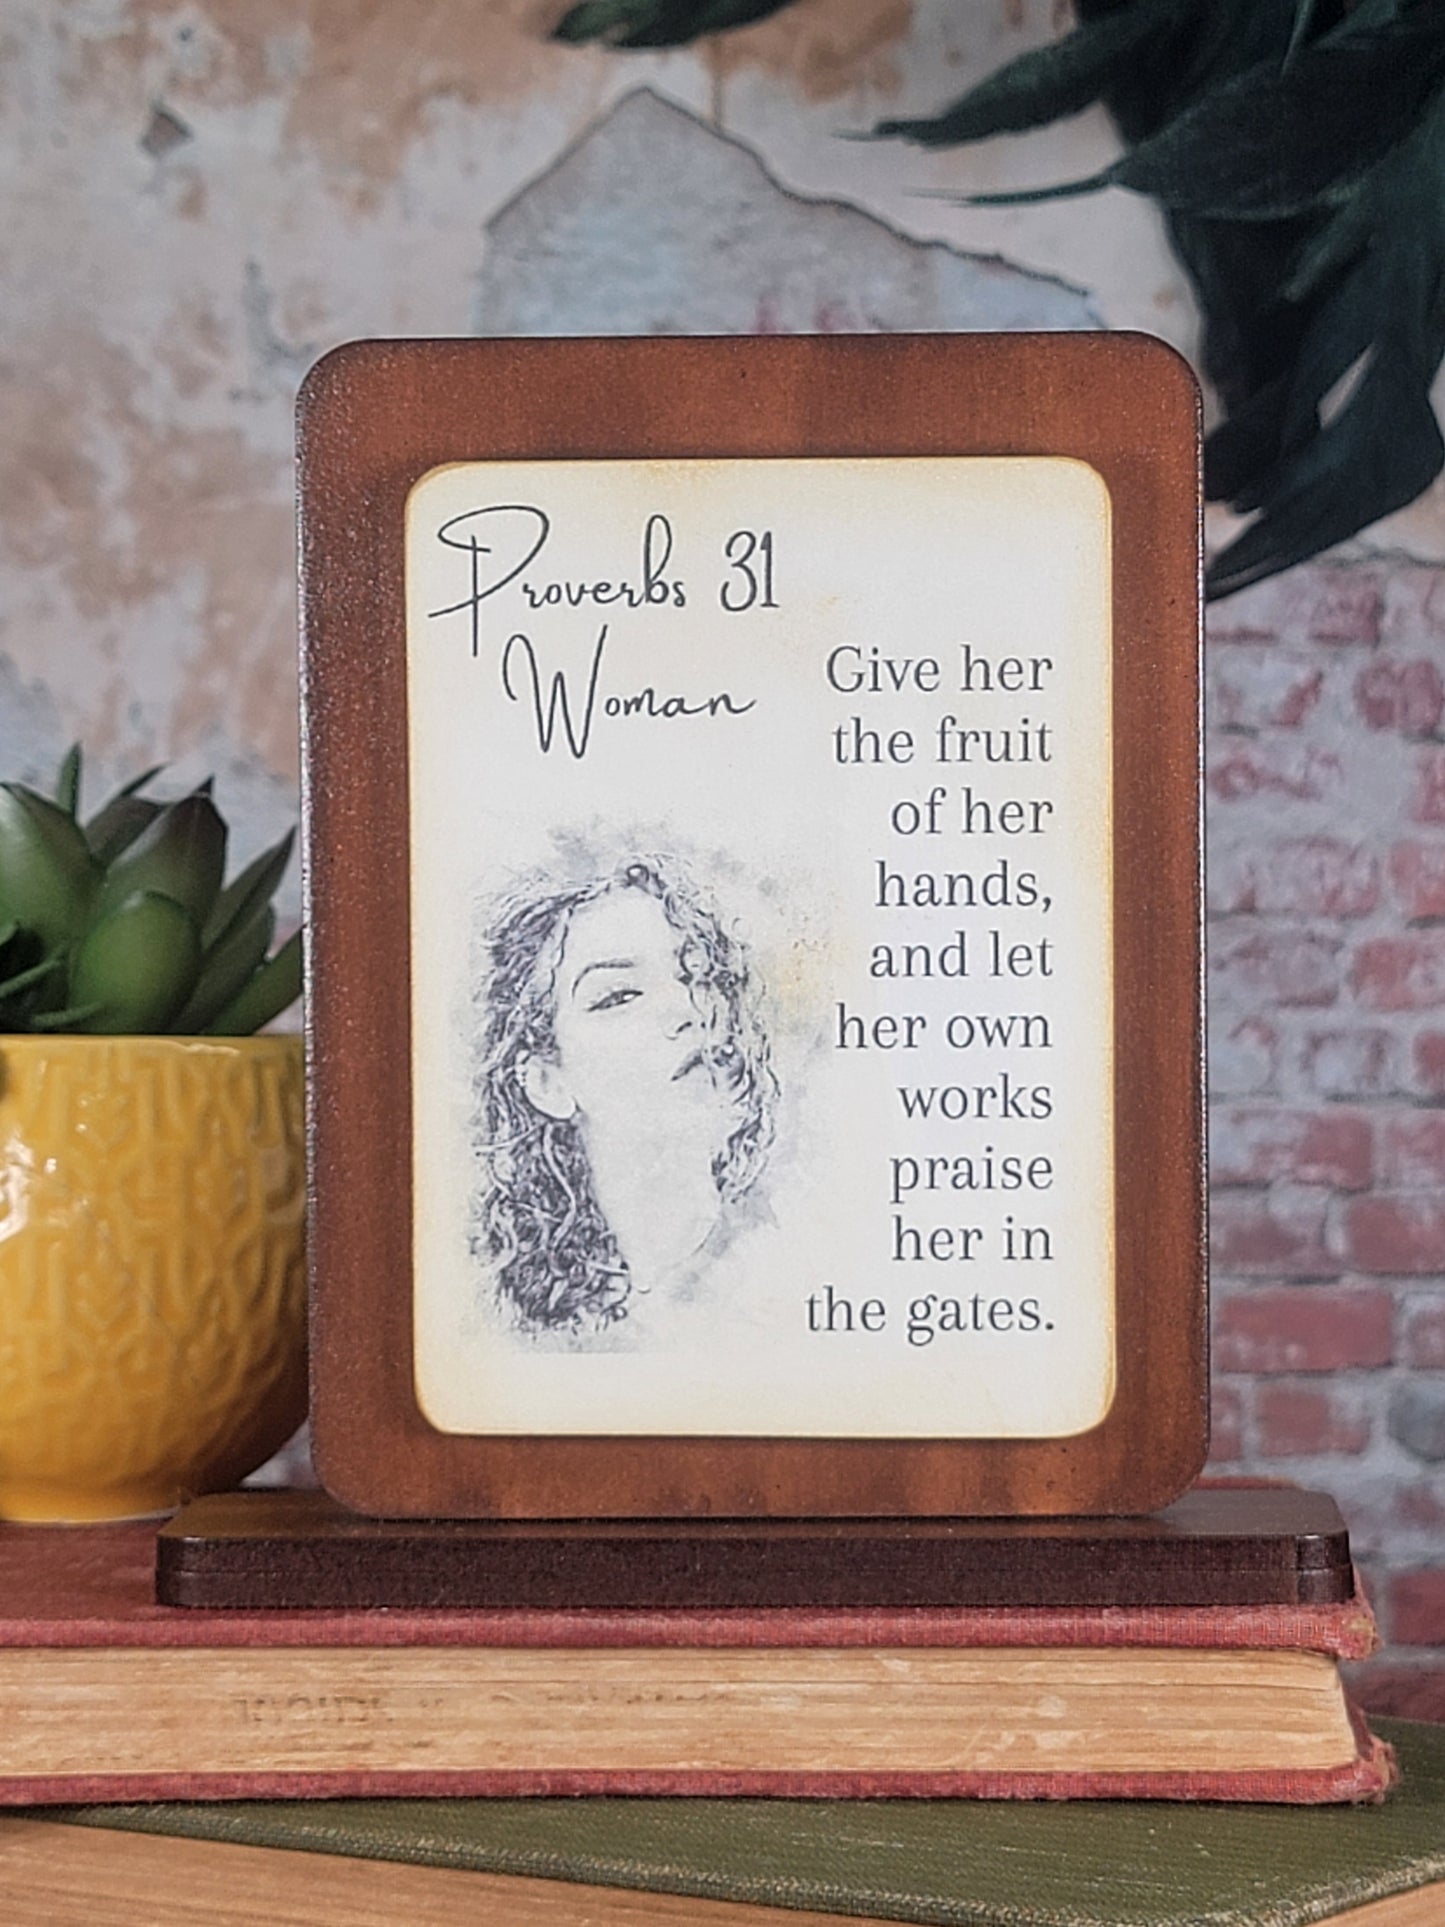 Proverbs 31
Woman
Give her
the fruit
of her
hands,
and let
her own
works
praise
her in
the gates.